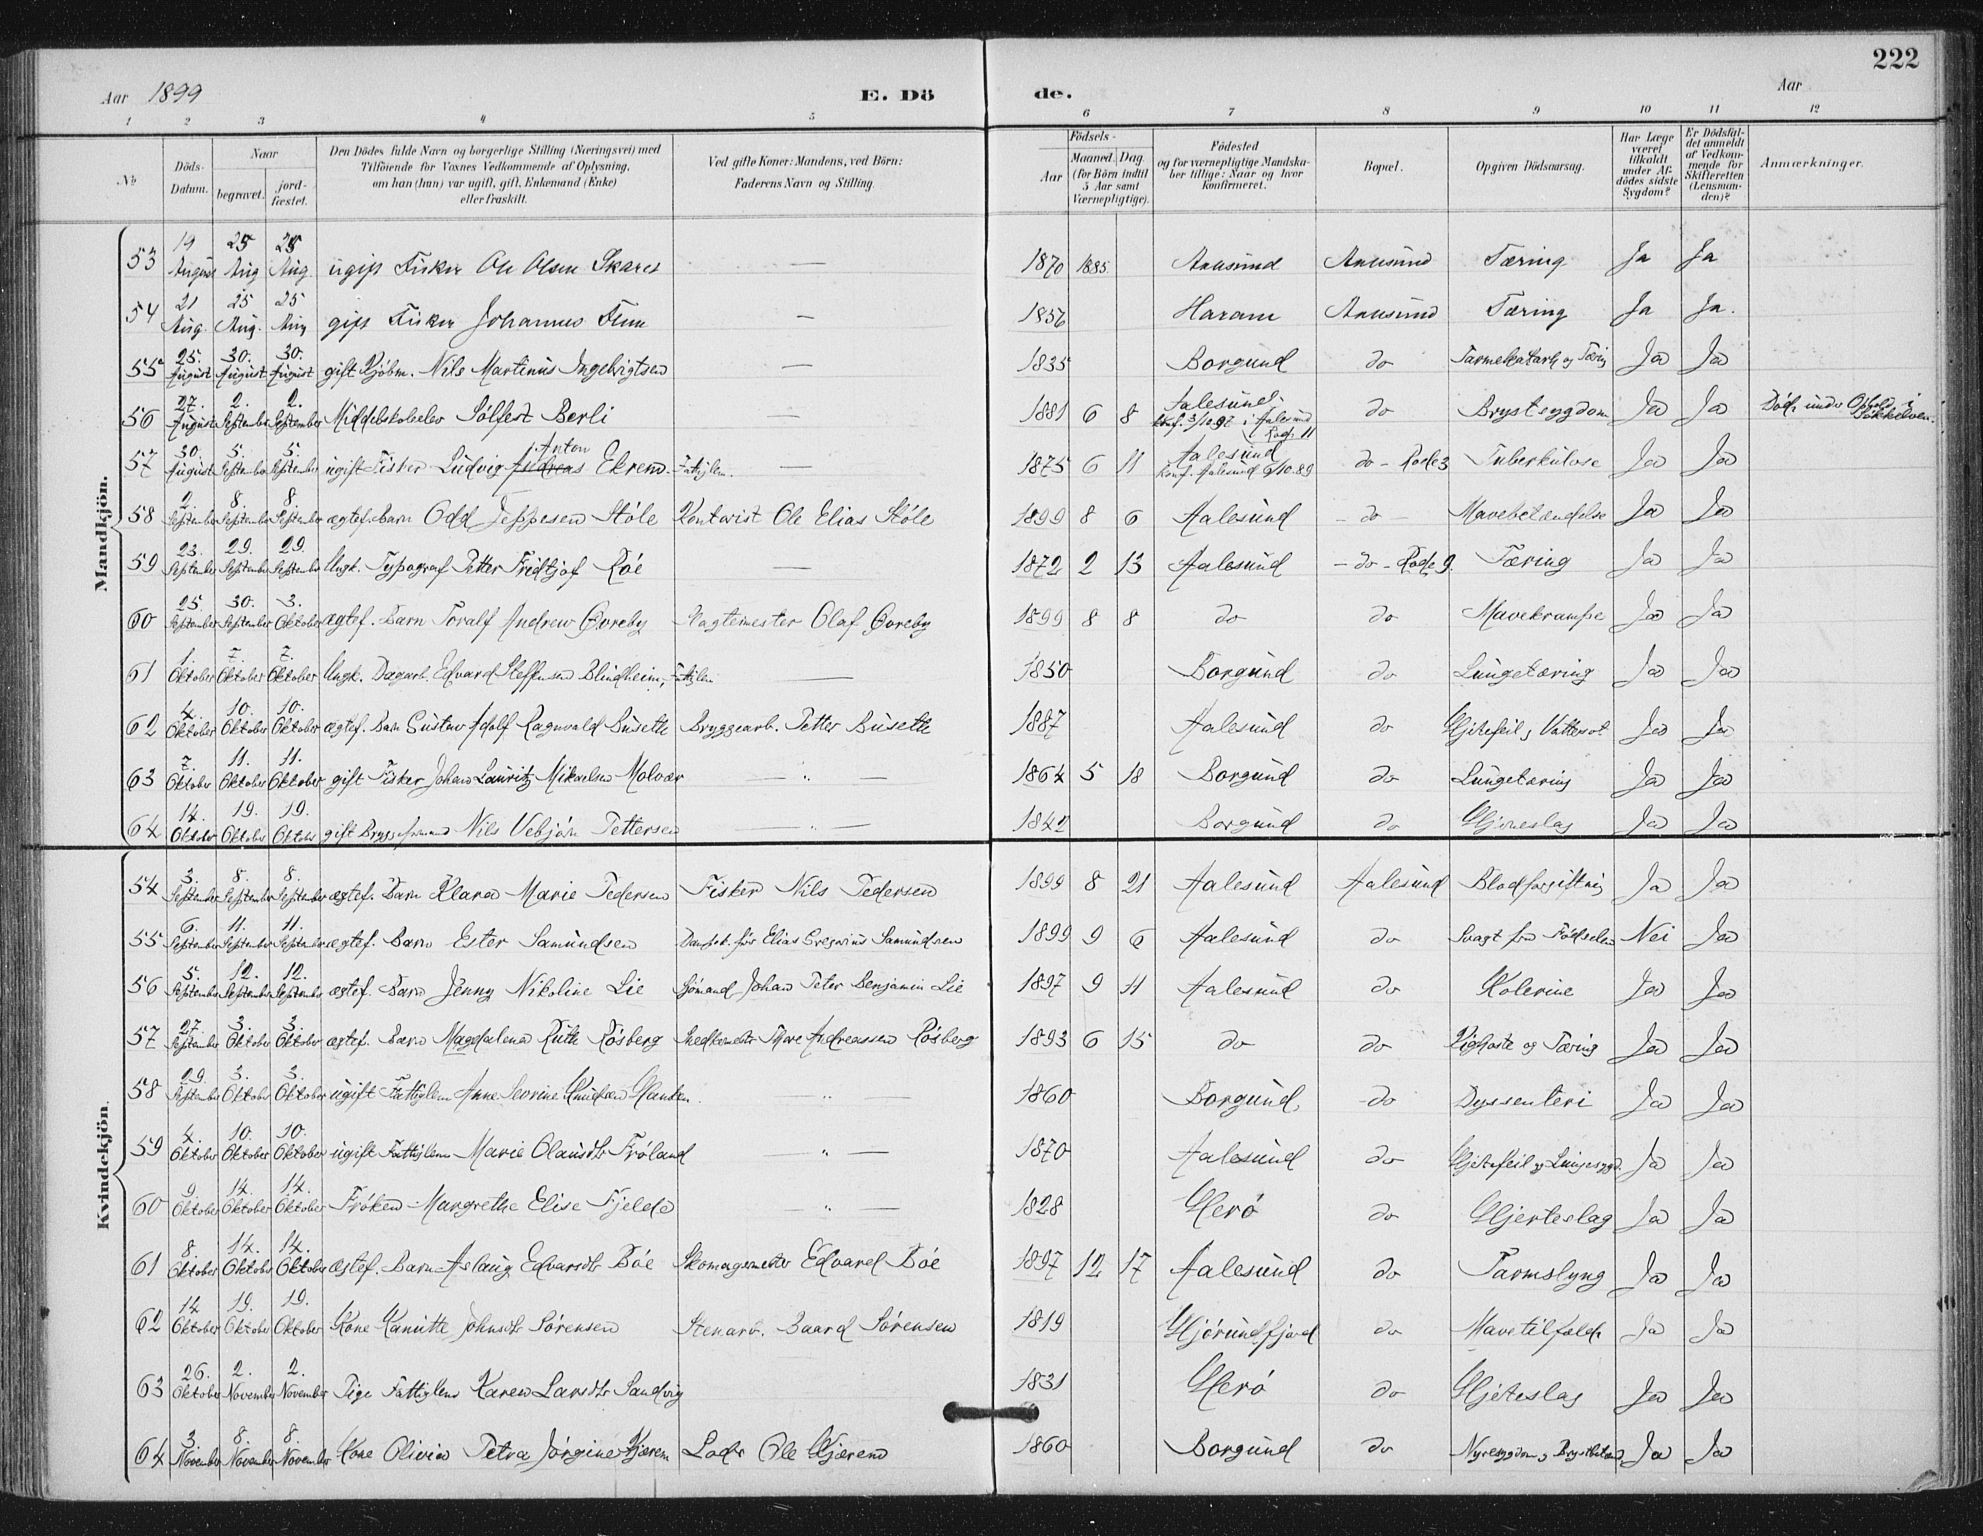 222
Aar 1899 E. Dö de. Aar
1 2 3 4 5 6 7 8 9 10 11 12
No
Döds-Datum.
Naar
begravet.
jord-fæstet.
Den Dödes fulde Navn og borgerlige Stilling (Næringsvei) med
Tilföiende for Voxnes Vedkommende af Oplysning,
om han (hun) var ugift, gift, Enkemand (Enke)
eller fraskilt.
Ved gifte Koner: Mandens, ved Börn:
Faderens Navn og Stilling.
Födsels-
Aar
Maaned. Dag.
(for Börn indtil
5 Aar samt
Værnepligtige).
Födested
og for værnepligtige Mandska-
ber tillige: Naar og hvor
konfirmeret.
Bopæl.
Opgiven Dödsaarsag.
Har Læge
været
tilkaldt
under Af-
dödes sidste
Sygdom?
Er Dödsfal-
det anmeldt
af Vedkom-
mende for
Skifteretten
(Lensman-
den)?
Anmærkninger.
Mandkjön.
53 19 August 25 Aug 25 Aug. ugift Fisker Ole Olsen Skaret — 1870 1885 Aalesund Aalesund Tæring Ja Ja
54 21 Aug. 25 Aug. 25 Aug gift Fisker Johannes — 1856 Haram Aalesund Tæring Ja Ja.
55 25. August 30. August 30. August gift Kjöbm. Nils Martinus Ingebrigtsen — 1835 Borgund do Tarmekatarh og Ja Ja
56 27. August 2. September 2. September Middelskoleelev Sölfest Berli — 1881 6 8 Aalesund. do Brystsygdom Ja Ja Död under Ophold i Sökkelven.
konf. 3/10 97 i Aalesund
Rode 11
57 30. August 5. September 5. September ugift Fisker Ludvig Anton Ekrem. Fattiglem. — 1875 6 11 Aalesund do - Rode 3 Tuberkulose Ja Ja
konf. Aalesund 6/10.89
58 2. September 8. September 8. September ægtef. Barn Odd Jeppesen Stöle Kontorist Ole Elias Stöle 1899 8 6 Aalesund — do — Mavebetændelse Ja Ja
59 23. September 29. September 29. September Ungk. Typograf Petter Fridtjof Röe — 1872 2 13 Aalesund — do - Rode 9. Tæring Ja Ja
60 25. September 30. September 3. Oktober ægtef. Barn Toralf Andrew Övreby Vagtmester Olaf Övreby 1899 8 8 do do Mavekrampe Ja Ja
61 1. Oktober 7. Oktober 7. Oktober Ungk. Dagarb. Edvard Steffensen Blindheim, Fattiglem — 1850 Borgund do Lungetæring Ja Ja
62 4. Oktober 10. Oktober 10. Oktober ægtef. Barn Gustav Adolf Ragnvald Busetk Bryggearb. Petter Busetk 1887 Aalesund do Hjertefeil, Vattersot Ja Ja
63 7. Oktober 11. Oktober 11. Oktober gift Fisker Johan Lauritz Mikaelsen Molvær — " — 1864 5 18 Borgund do Lungetæring Ja Ja
64 14. Oktober 19. Oktober 19. Oktober gift Bryggeformand Nils Vebjörn Pettersen — " — 1842 Borgund do Hjerneslag Ja Ja
Kvindekjön.
54 3. September 8. September 8. September ægtef. Barn Klara Marie Pedersen Fisker Nils Pedersen 1899 8 21 Aalesund Aalesund Blodforgiftning Ja Ja
55 6. September 11. September 11. September ægtef. Barn Ester Samundsen Dampsk.förer Elias Gregorius Samundsen 1899 9 6 Aalesund do Svagt fra Födselen Nei Ja
56 5. September 12. September 12. September ægtef. Barn Jenny Nikoline Lie Sjömand Johan Peter Benjamin Lie 1897 9 11 Aalesund do Kolerine Ja Ja
57 27. September 3. Oktober 3. Oktober ægtef. Barn Magdalena Ruth Rösberg Snedkermester Thore Andreassen Rösberg 1893 6 15 do do Kighoste og Tæring Ja Ja
58 29. September 3. Oktober 3. Oktober ugift Fattiglem Anne Severine Knudsen Hanken. — " — 1860 Borgund. do Dyssenteri Ja Ja
59 4. Oktober 10. Oktober 10. Oktober ugift Fattiglem Marie Olausdtr Fröland — " — 1870 Aalesund do Hjertefeil og Lungesygd. Ja Ja
60 9. Oktober 14. Oktober 14. Oktober Fröken Margrethe Elise Fjelde — " — 1828 Herö do Hjerteslag Ja Ja
61 8. Oktober 14. Oktober 14. Oktober ægtef. Barn Aslaug Edvarsdtr Böe Skomagermester Edvard Böe 1897 12 17 Aalesund do Tarmslyng Ja Ja
62 14. Oktober 19. Oktober 19. Oktober Kone Kanutte Johnsdtr Sörensen Stenarb. Baard Sörensen 1819 Hjörundfjord do Mavetilfælde Ja Ja
63 26. Oktober 2. November 2. November Pige Fattiglem Karen Larsdtr Sandvig 1831 Herö do Hjerteslag Ja Ja
64 3. November 8. November 8. November Kone Olivia Petra Jörgine Hjærem Lods Ole Hjærem 1860 Borgund do Nyresygdom, Ja Ja